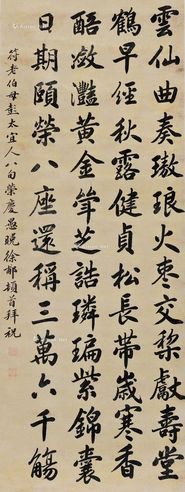 雲仙曲奏璈琅火棗交棃獻壽堂
鶴早經秋露健貞松長帶歲寒香
醅瀲灧黃金䇶芝誥璘㻞紫錦囊
日期頤榮八座還稱三萬六千觴
符老伯母彭太宜人八旬榮慶愚晚徐郙頓首拜祝